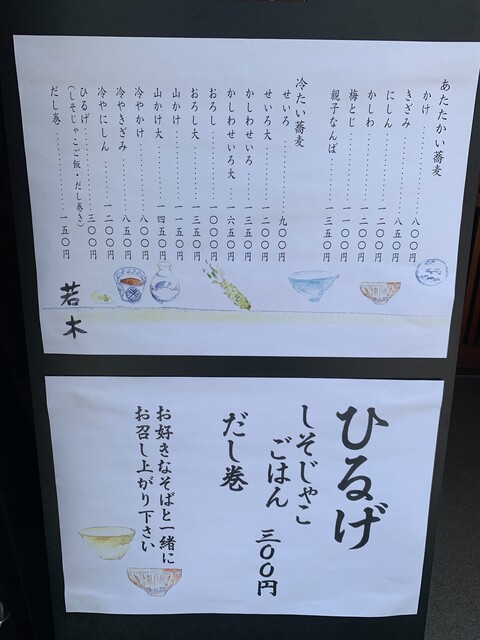 あたたかい蕎麦
かけ…………八〇〇円
きざみ…………八五〇円
にしん…………一二〇〇円
かしわ…………一二〇〇円
梅とじ…………一一〇〇円
親子なんば…………一三五〇円
冷たい蕎麦
せいろ…………九〇〇円
せいろ大…………一二〇〇円
かしわせいろ…………一三五〇円
かしわせいろ大…………一六五〇円
おろし…………一〇〇〇円
おろし大…………一三五〇円
山かけ…………一一五〇円
山かけ大…………一四五〇円
冷やかけ…………八〇〇円
冷やきざみ…………八五〇円
冷やにしん…………一二〇〇円
ひるげ…………三〇〇円
(しそじゃこご飯・だし巻き)
だし巻…………一五〇円
若木
ひるげ
しそじゃこ
ごはん 三〇〇円
だし巻
お好きなそばと一緒に
お召し上がり下さい